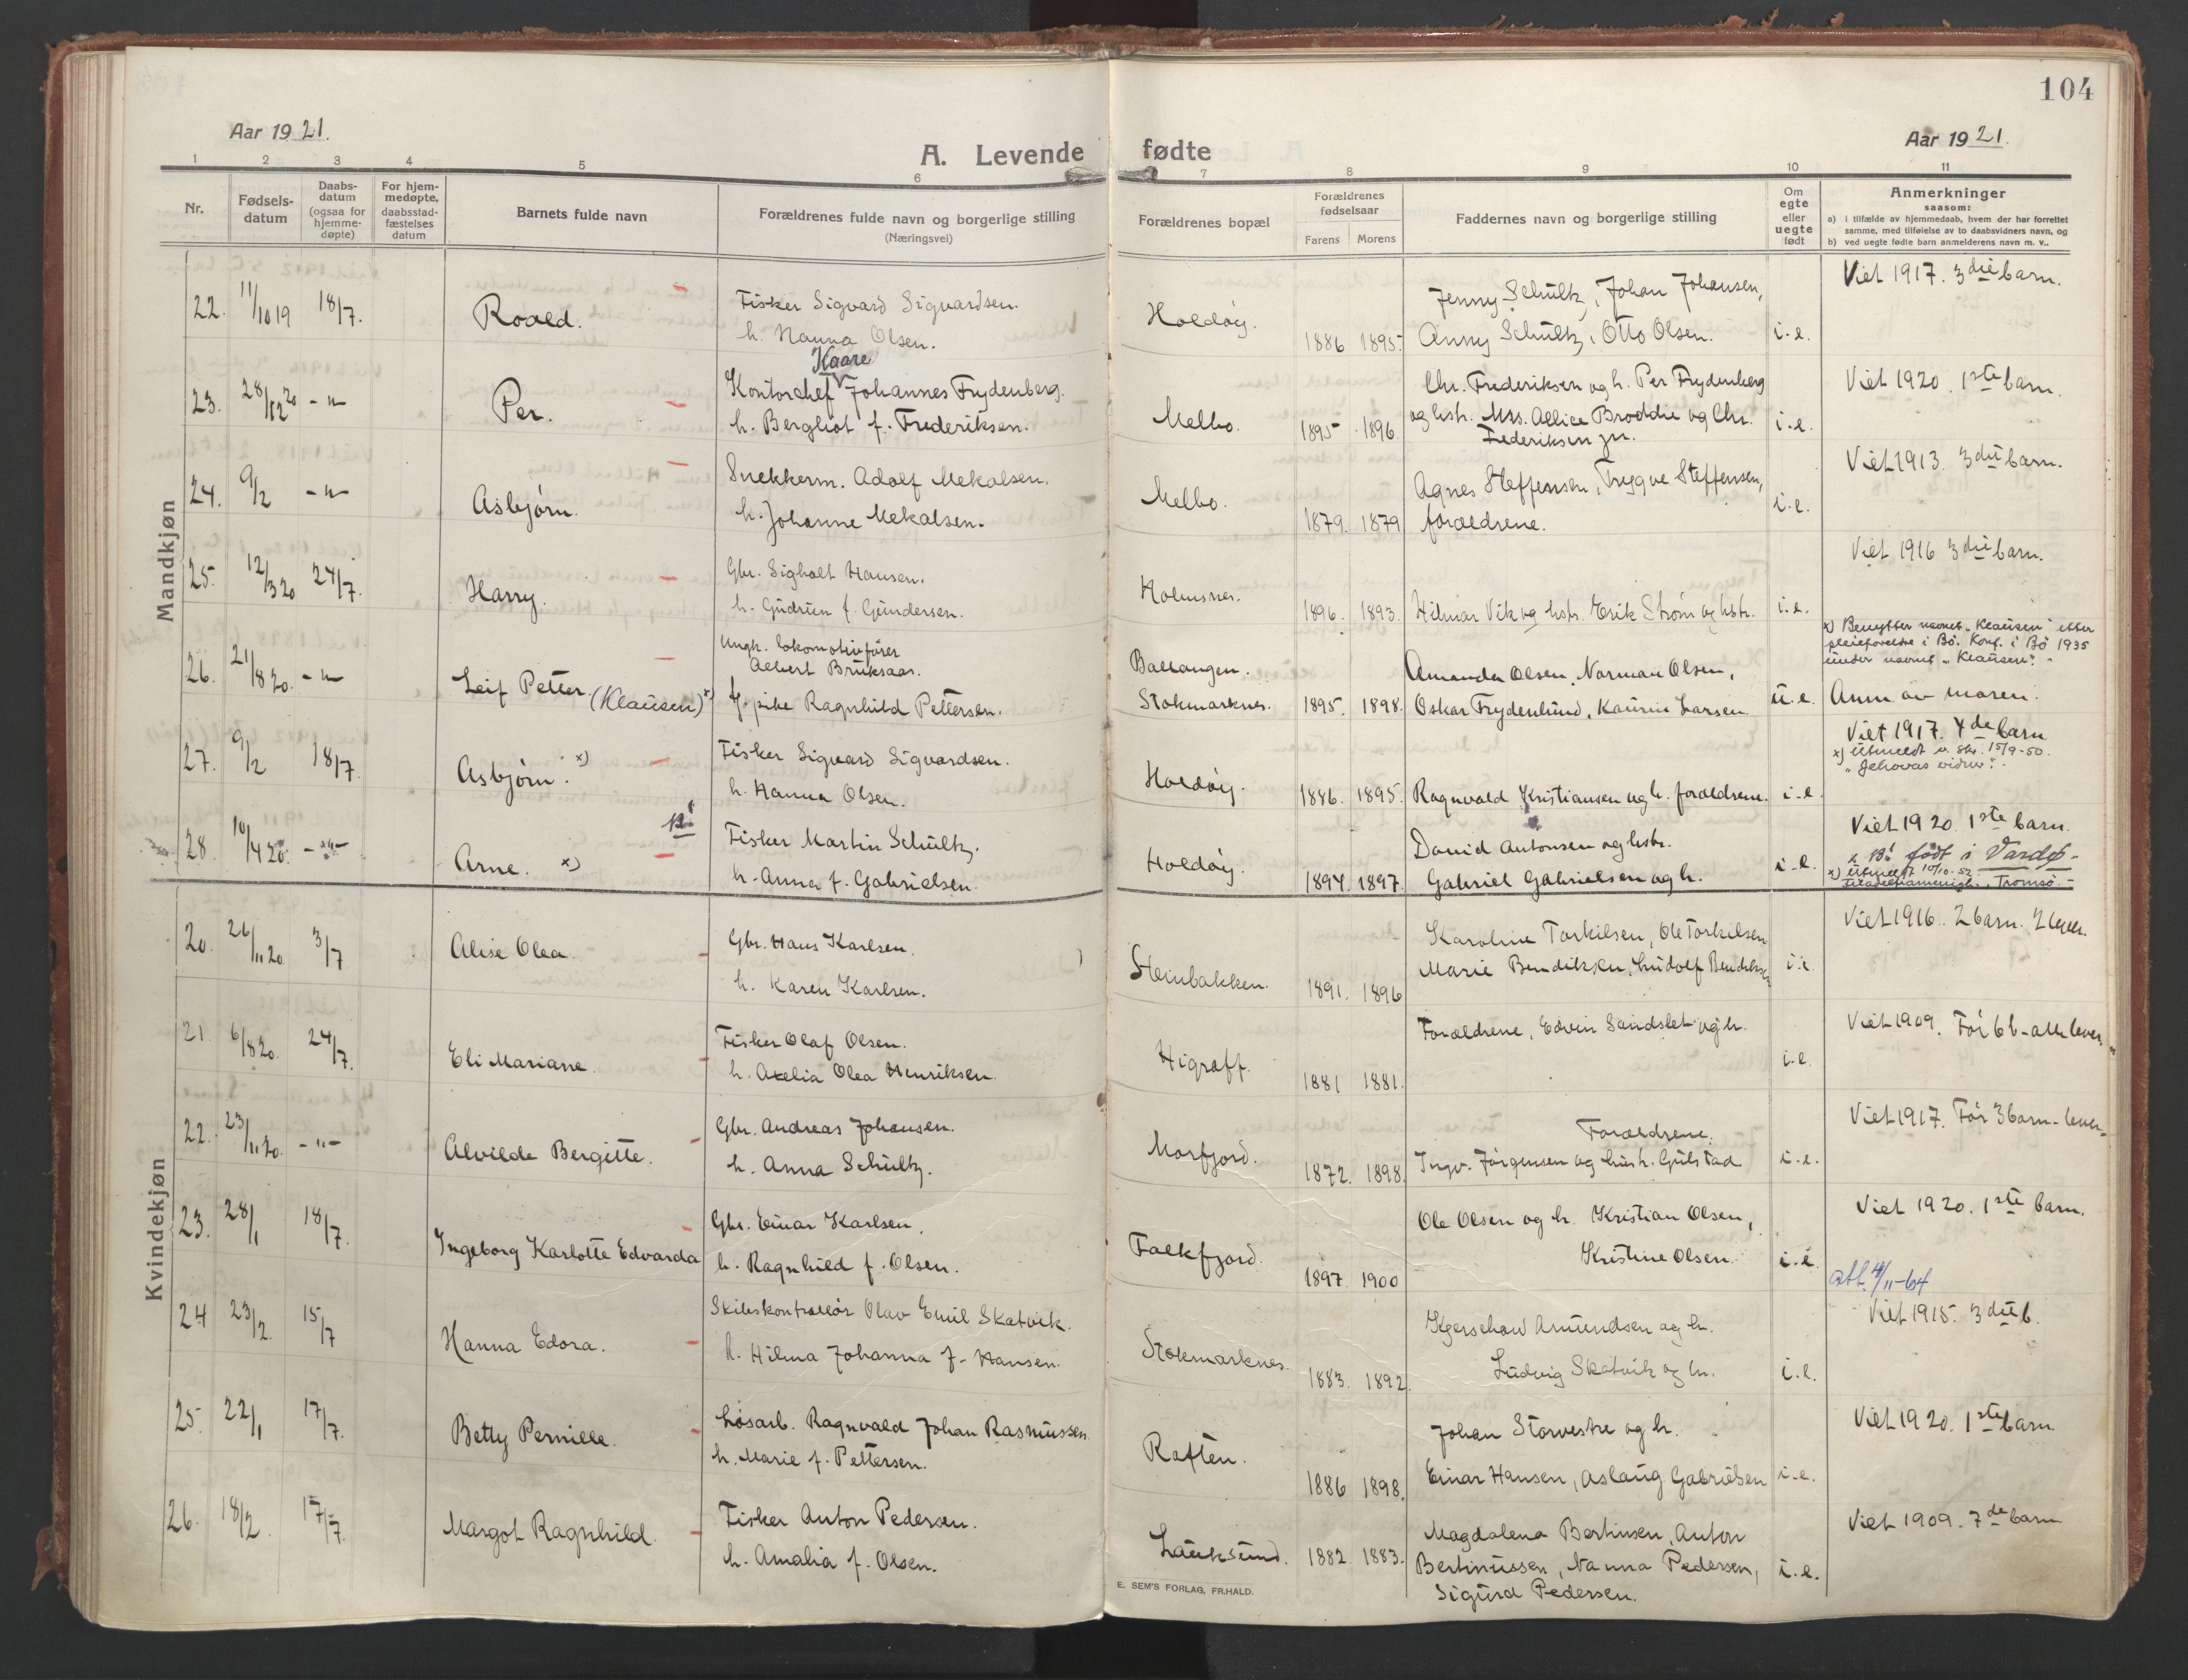 104
Aar 1921.
A. Levende fødte
Aar 1921.
1 2 3 4 5 6 7 8 9 10 11
Nr.
Fødsels-
datum
Daabs-
datum
(ogsaa for
hjemme-
døpte)
For hjem-
medøpte,
daabsstad-
fæstelses
datum
Barnets fulde navn
Forældrenes fulde navn og borgerlige stilling
(Næringsvei)
Forældrenes bopæl
Forældrenes
fødselsaar
Farens Morens
Faddernes navn og borgerlige stilling
Om
egte
eller
uegte
født
Anmerkninger
saasom:
a) i tilfælde av hjemmedaab, hvem der har forrettet
samme, med tilføielse av to daabsvidners navn, og
b) ved uegte fødte barn anmelderens navn m. v..
Mandkjøn
22. 11/10 19 18/7. Roald.
Fisker Sigvard Sigvardsen.
h. Hanna Olsen.
Holdöy. 1886 1895.
Jenny Schultz, Johan Johansen,
Anny Schultz, Otto Olsen.
i.e.
Viet 1917. 3die barn.
23. 28/12 20 -"- Per.
Kaare
Kontorchef Johannes Frydenberg.
h. Bergliot f. Frederiksen.
Melbo. 1895 1896.
Chr. Frederiksen og h. Per Frydenberg
og hstr. Mrs. Allice Broddie og Chr.
Federiksen jr.
i.e.
Viet 1920. 1ste barn.
24. 9/2 -"- Asbjørn.
Snekkerm. Adolf Mekalsen.
h. Johanne Mekalsen.
Melbo. 1879. 1879
Agnes Steffensen, Trygve Steffensen,
forældrene.
i.e.
Viet 1913. 3die barn.
25. 12/3 20 24/7. Harry.
Gbr. Sigholt Hansen.
h. Gudrun f. Gundersen.
Holmsnes. 1896. 1893.
Hilmar Vik og hstr. Erik Strøm og hstr.
i.e.
Viet 1916 3die barn.
26. 21/8 20. -"- Leif Petter. (Klausen) x)
Ungk. Lokomotivfører
Albert Bruksaas.
P. pike Ragnhild Pettersen.
Ballangen.
Stokmarknes. 1895. 1898.
Amanda Olsen, Norman Olsen,
Oskar Frydenlund, Kaurin Larsen.
u.e.
x) Benytter navnet "Klausen" efter
pleieforeldre i Bö. Konf. i Bö 1935
under navnet "Klausen".-
Anm av moren.
27. 9/2 18/7. Asbjørn. x)
Fisker Sigvard Sigvardsen.
h. Hanna Olsen.
Holdöy. 1886. 1895.
Ragnvald Kristiansen og h. forældrene.
i.e.
Viet 1917. 4de barn
x) Utmeldt v. skr. 15/9-50.
"Jehovas vidner".-
28. 10/4 20. -"- Arne. x)
Fisker Martin Schultz.
h. Anna f. Gabrielsen.
Holdöy. 1894. 1897.
David Antonsen og hstr.
Gabriel Gabrielsen og h.
i.e.
Viet 1920. 1ste barn.
født i Vardø -
x) Utmeldt 10/10-52
Filadelfiamenigh., Tromsö.-
Kvindekjøn
20. 26/11 20. 3/7 Alise Olea.
Gbr. Hans Karlsen.
h. Karen Karlsen.
Steinbakken. 1891. 1896
Karoline Torkilsen, Ole Torkilsen
Marie Bendiksen, Ludolf Bendiksen
i.e.
Viet 1916. 2 barn. 2 lever.
21. 6/8 20. 24/7. Eli Mariane.
Fisker Olaf Olsen.
h. Axelia Olea Henriksen.
Higraff. 1881 1881.
Forældrene, Edvin Sandslet og h.
i.e.
Viet 1909. Før 6 b- alle lever.
22. 23/11 20. -"- Alvilde Bergitte.
Gbr. Andreas Johansen.
h. Anna Schultz.
Morfjord. 1872. 1898.
Forældrene.
Ingv. Jörgensen og hustr. Gulstad.
i.e.
Viet 1917. Før 3 barn- lever.
23. 28/1 18/7. Ingeborg Karlotte Edvarda
Gbr. Einar Karlsen.
h. Ragnhild f. Olsen.
Falkfjord. 1897. 1900
Ole Olsen og h. Kristian Olsen,
Kristine Olsen.
i.e.
Viet 1920. 1ste barn.
att. 4/11-64
24 23/2. 15/7 Hanna Edora.
Skibskontrollör Olav Emil Skatvik.
h. Hilma Johanna f. Hansen.
Stokmarknes. 1883. 1892.
Kjerschow Amundsen og h.
Ludvig Skatvik og h.
i.e.
Viet 1915. 3die b.
25. 22/1 17/7. Betty Pernille.
Løsarb. Ragnvald Johan Rasmussen.
h. Marie f. Pettersen.
Raften. 1886 1898.
Johan Storvestre og h.
Einar Hansen, Aslaug Gabrielsen
i.e.
Viet 1920. 1ste barn.
26. 18/2 17/7. Margot Ragnhild.
Fisker Anton Pedersen.
h. Amalia f. Olsen.
Lauksund. 1882. 1883.
Magdalena Bertinsen, Anton
Bertinussen, Nanna Pedersen,
Sigurd Pedersen.
i.e.
Viet 1909. 7de barn
E. SEM'S FORLAG, FR.HALD.